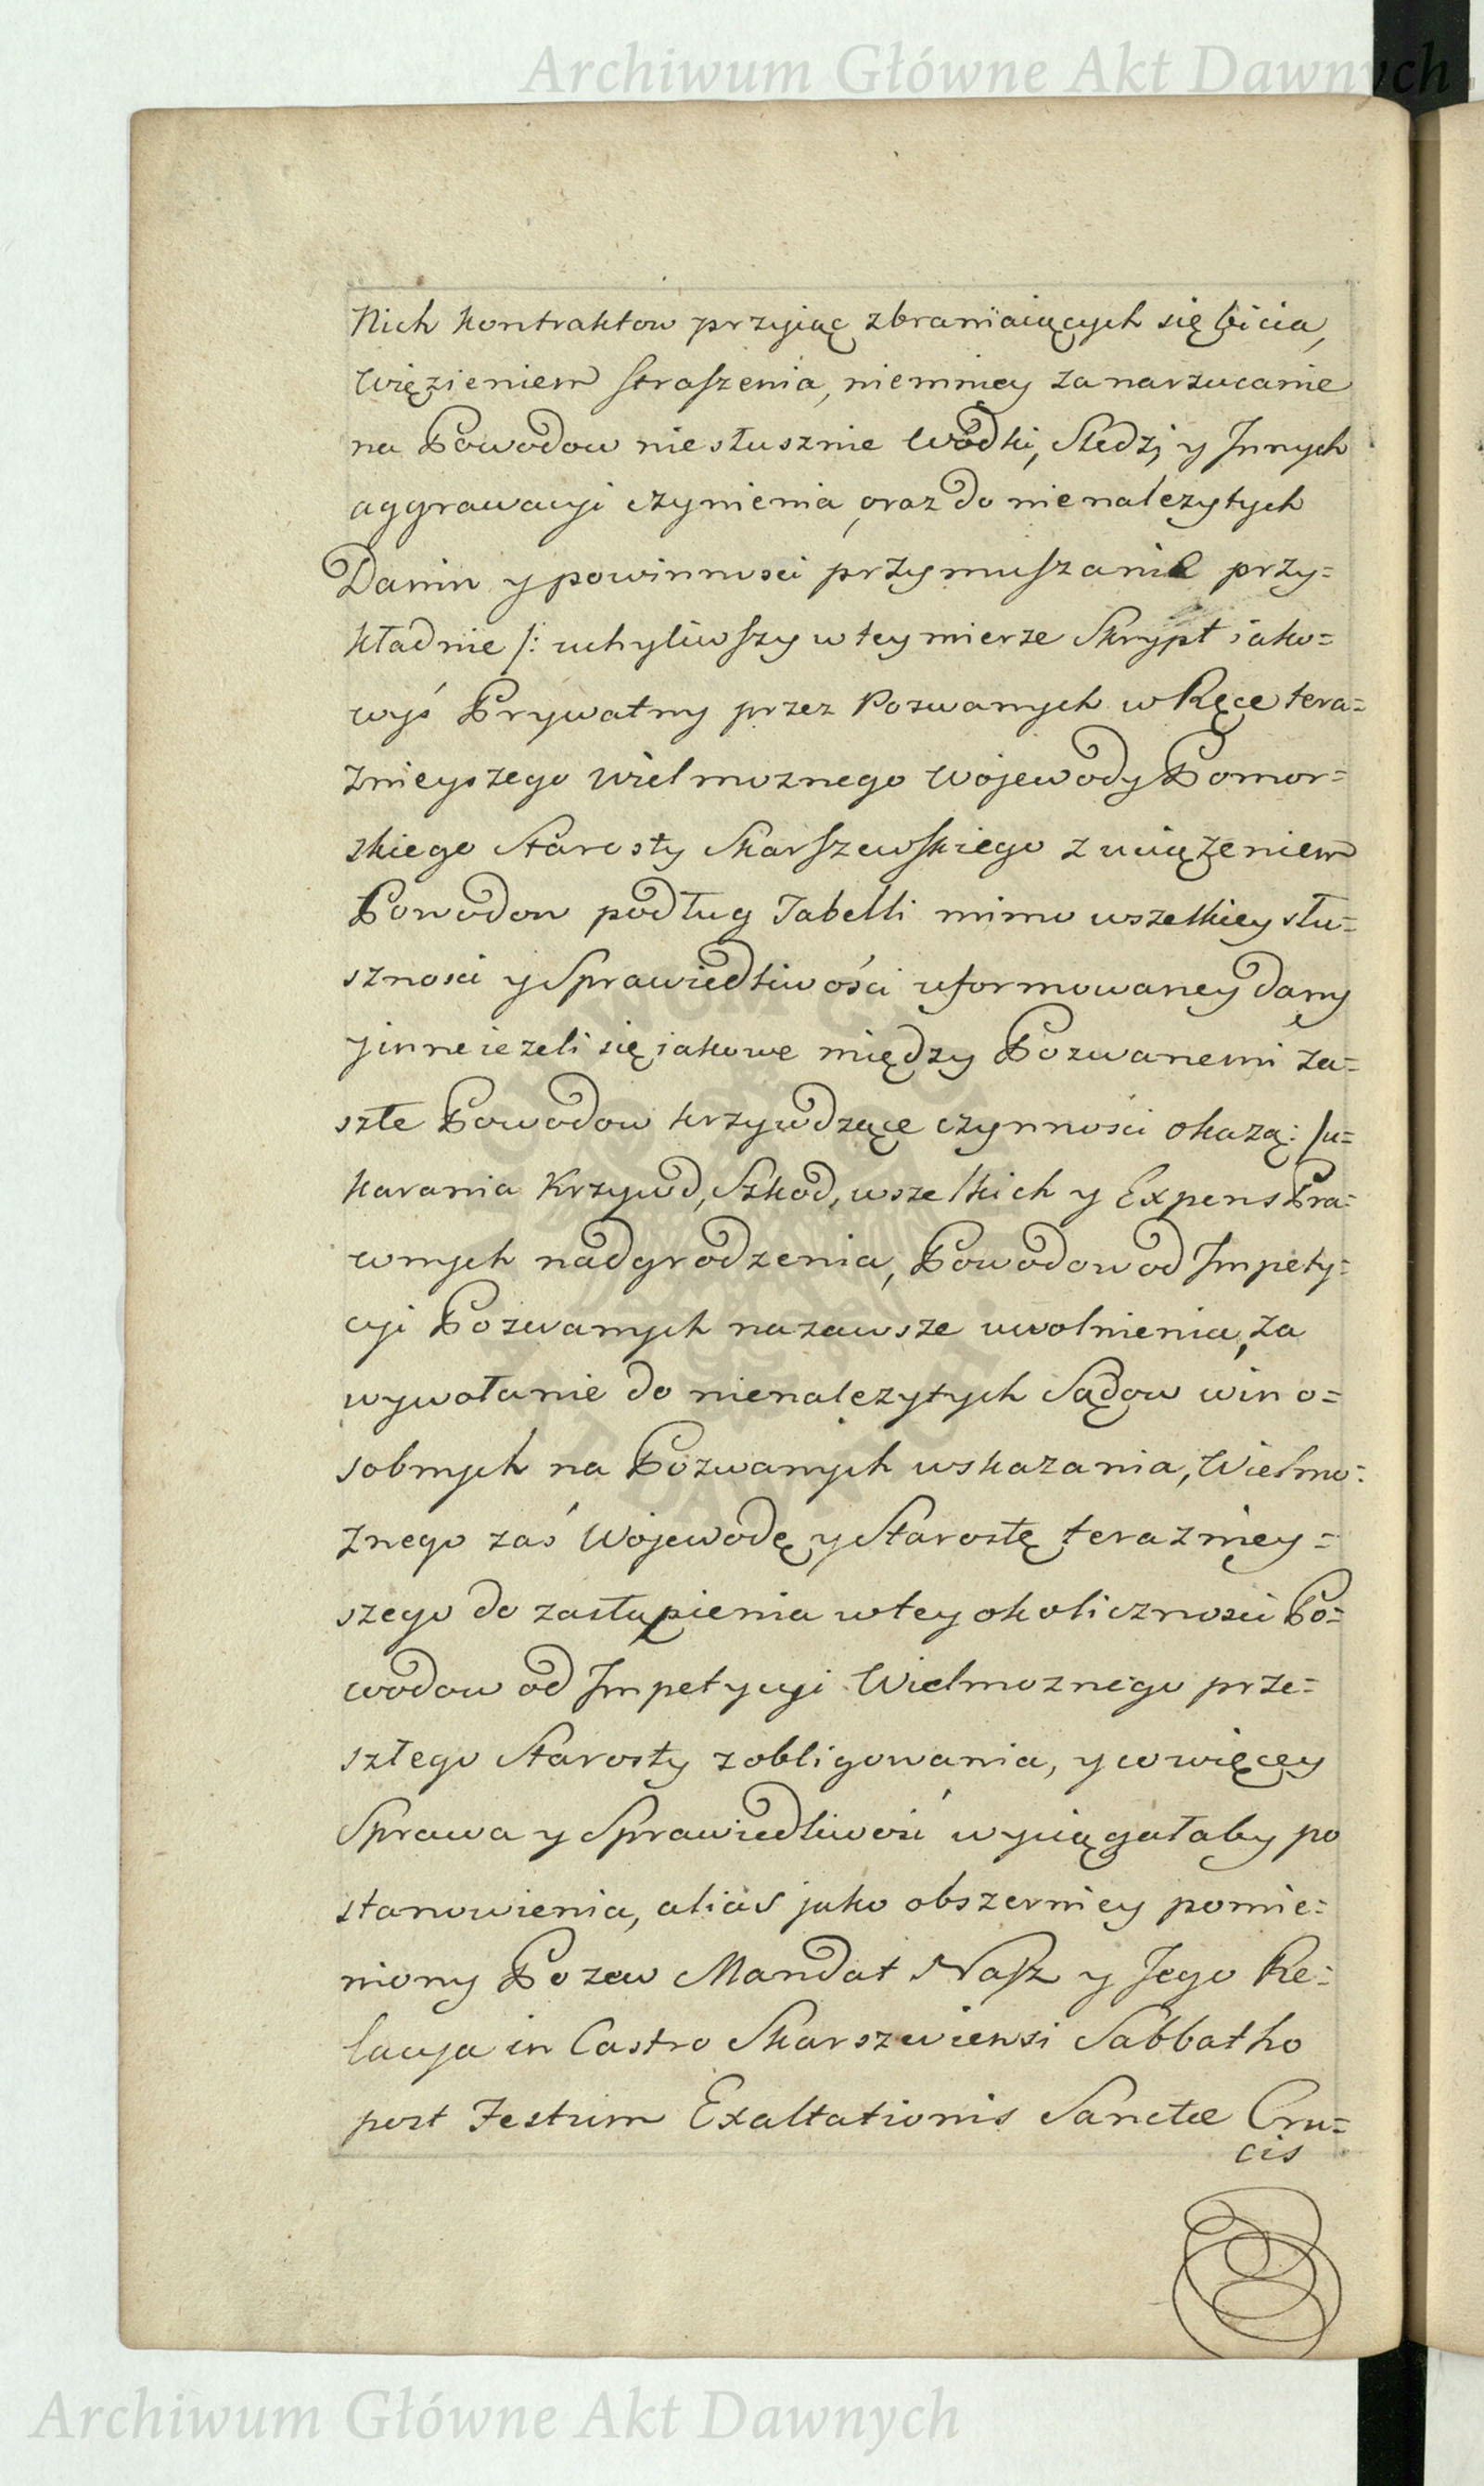 Archiwum Główne Akt Dawnych
Nich kontraktow przyiąc zbraniaiących się bicia,
więzieniem straszenia, niemniey za narzucanie
na Powodow niesłusznie wodki, Sledzi y Innych
aggrawacyi czynienia, oraz do nienalezytych
Danin y powinnosci przymuszanie przy=
kładnie /: uchyliwszy w tey mierze Skrypt iako=
wyś Prywatny przez Pozwanych w Ręce tera=
znieyszego Wielmoznego Wojewody Pomor=
skiego Starosty Skarszewskiego z uciązeniem
Powodow podług Tabelli mimo wszelkiey słu=
sznosci y Sprawiedliwości uformowaney dany
y inne iezeli się iakowe między Pozwanemi za=
szłe Powodow krzywdzące czynnosci okazą: /u=
karania Krzywd, Szkod, wszelkich y Expens Pra=
wnych nadgrodzenia, Powodow od Impety=
cyi Pozwanych nazawsze uwolnienia, za
wywołanie do nienalezytych Sądow win o=
sobnych na Pozwanych wskazania, Wielmo=
znego zaś Wojewodę y Starostę terazniey=
szego do zastąpienia w tey okolicznosci Po=
wodow od Impetycyi Wielmoznego prze=
szłego Starosty zobligowania, y co więcey
Sprawa y Sprawiedliwość wyciągałaby po
stanowienia, alias jako obszerniey pomie=
niony Pozew Mandat Nasz y Jego Re=
lacya in Castro Skarszewiensi Sabbatho
post Festum Exaltationis Sanctæ Cru=
cis
Archiwum Główne Akt Dawnych